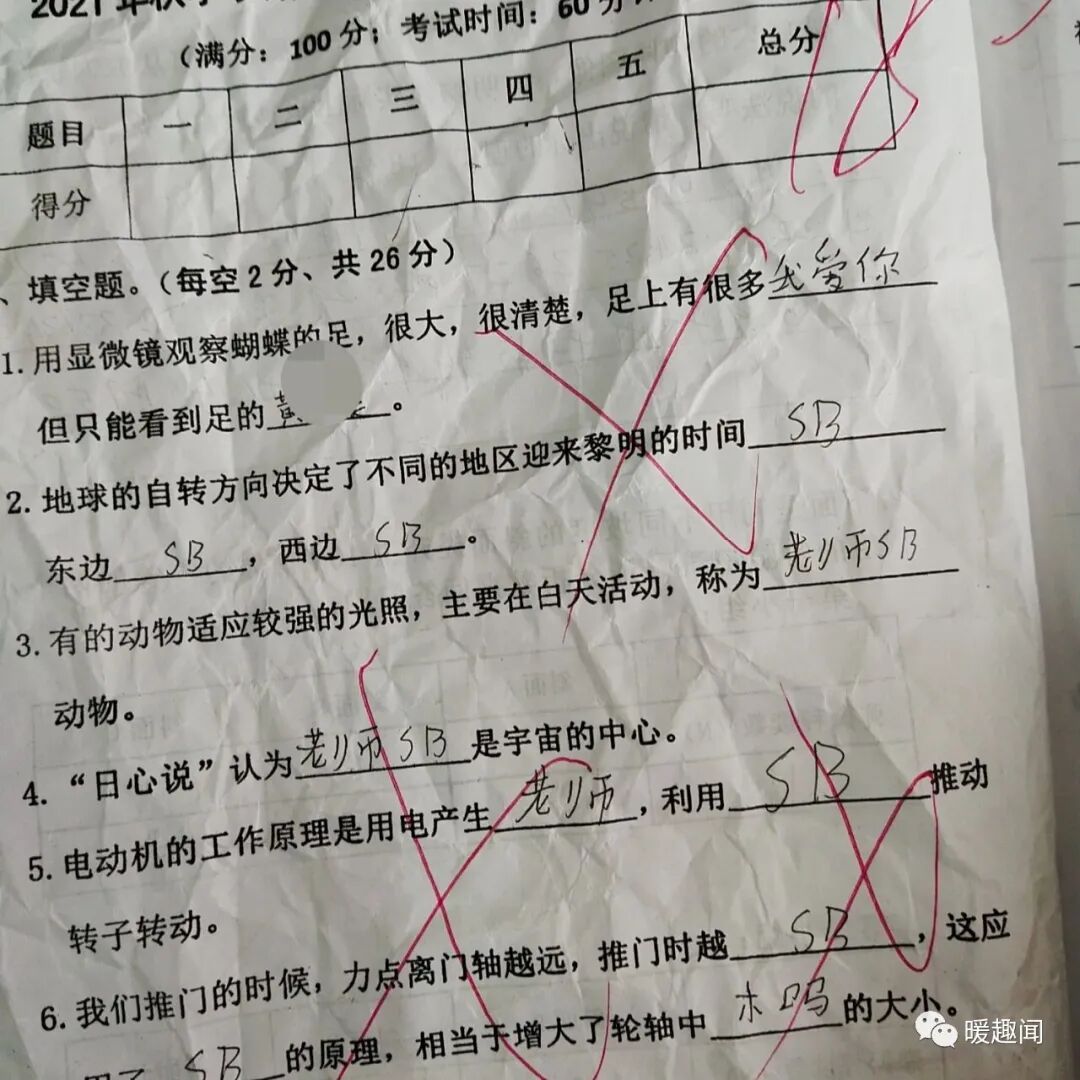 2021年秋季
(满分：100分；考试时间：60分
题目 一 二 三 四 五 总分
得分
18
、填空题。(每空2分、共26分)
1.用显微镜观察蝴蝶的足，很大，很清楚，足上有很多我爱你
但只能看到足的黄。
2.地球的自转方向决定了不同的地区迎来黎明的时间SB
东边SB，西边SB。
3.有的动物适应较强的光照，主要在白天活动，称为老师SB
动物。
4.“日心说”认为老师SB是宇宙的中心。
5.电动机的工作原理是用电产生老师，利用SB推动
转子转动。
6.我们推门的时候，力点离门轴越远，推门时越SB，这应
用了SB的原理，相当于增大了轮轴中木吗的大小。
暖趣闻